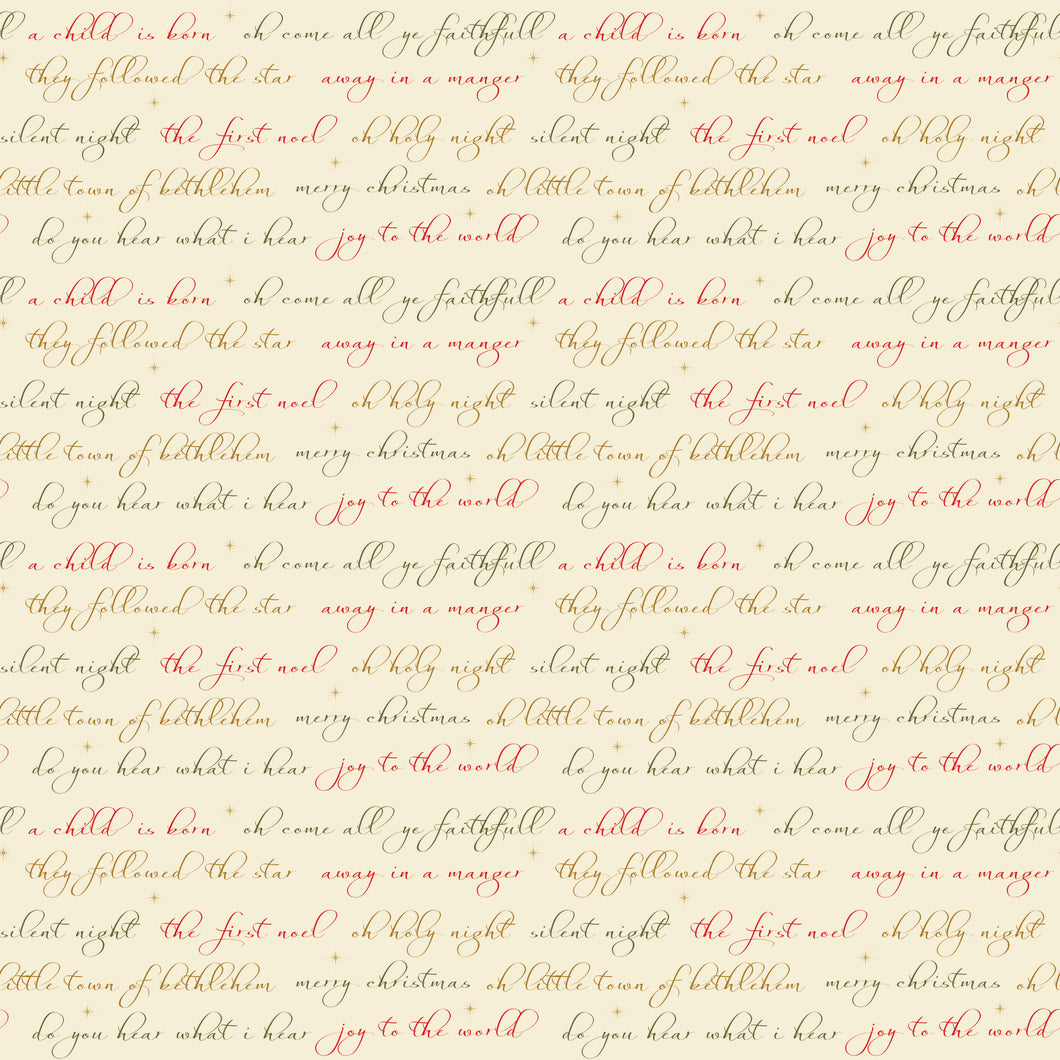 l a child is born oh come all ye faithfull a child is born oh come all ye faithful
they followed the star away in a manger they followed the star away in a manger
silent night the first noel oh holy night silent night the first noel oh holy night
little town of bethlehem merry christmas oh little town of bethlehem merry christmas oh l
do you hear what i hear joy to the world do you hear what i hear joy to the world
l a child is born oh come all ye faithfull a child is born oh come all ye faithful
they followed the star away in a manger they followed the star away in a manger
silent night the first noel oh holy night silent night the first noel oh holy night
little town of bethlehem merry christmas oh little town of bethlehem merry christmas oh l
do you hear what i hear joy to the world do you hear what i hear joy to the world
l a child is born oh come all ye faithfull a child is born oh come all ye faithful
they followed the star away in a manger they followed the star away in a manger
silent night the first noel oh holy night silent night the first noel oh holy night
little town of bethlehem merry christmas oh little town of bethlehem merry christmas oh l
do you hear what i hear joy to the world do you hear what i hear joy to the world
l a child is born oh come all ye faithfull a child is born oh come all ye faithful
they followed the star away in a manger they followed the star away in a manger
silent night the first noel oh holy night silent night the first noel oh holy night
little town of bethlehem merry christmas oh little town of bethlehem merry christmas oh l
do you hear what i hear joy to the world do you hear what i hear joy to the world